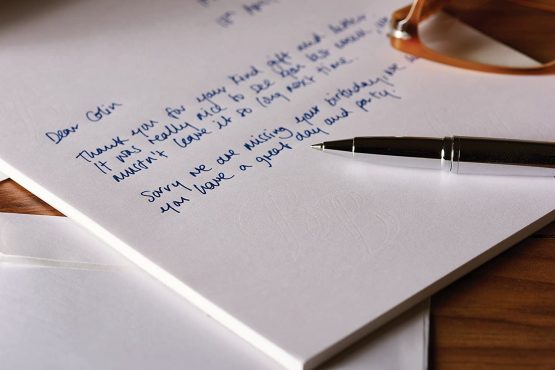 April
Dear Colin
Thank you for your kind gift and letter
It was really nice to see you last week, we
mustn't leave it so long next time.
Sorry we are missing your birthday, we
you have a great day and party